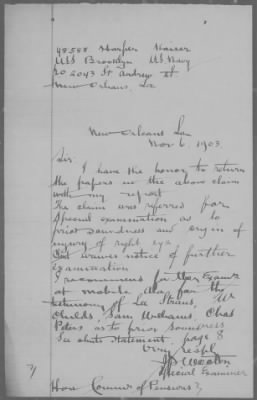 48588 Harper Kaiser
USS Brooklyn U.S. Navy
2043 St Andrew St
New Orleans, La
New Orleans La
Nov 6 1903
Sir:
I have the honor to return
the papers in the above claim
with my report
The claim was referred for
special examination as to
prior soundness and origin of
injury of right eye
waives notice of further
examination
I recommend for
at Mobile Ala, for the
testimony of La Straus, W
Childs, Sam Williams, Chas
Peters as to prior soundness
statement, page 8
Very resply
Special Examiner
Hon Commr of Pensions